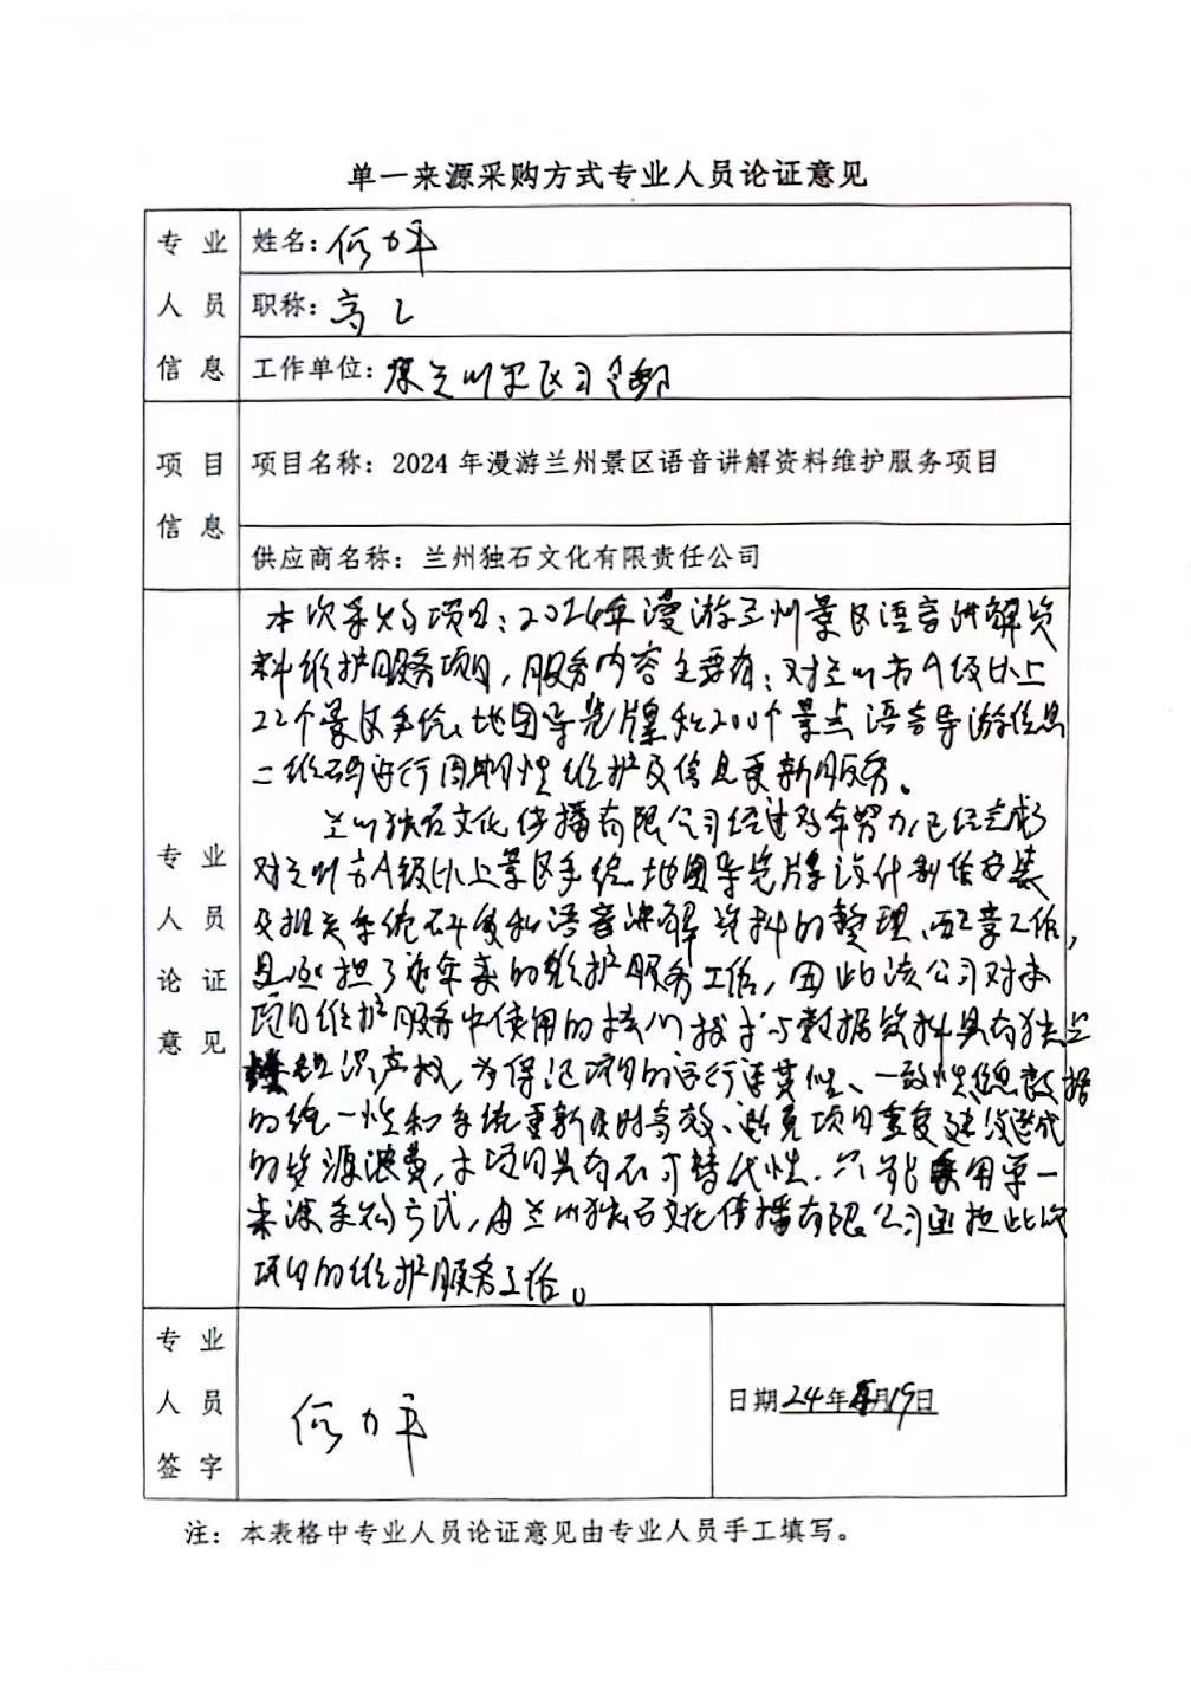 单一来源采购方式专业人员论证意见
专业人员信息
姓名：何力平
职称：高工
工作单位：原兰州军区司
项目信息
项目名称：2024年漫游兰州景区语音讲解资料维护服务项目
供应商名称：兰州独石文化有限责任公司
专业人员论证意见
本次采购项目：2024年漫游兰州景区语音讲解资
料维护服务项目，服务内容主要有：对兰州市A级以上
22个景区手绘地图导览牌和200个景点语音导游信息
二维码进行周期性维护及信息更新服务。
兰州独石文化传播有限公司经过多年努力，已经完成
对兰州市A级以上景区手绘地图导览牌设计制作安装
及相关系统研发和语音讲解资料的整理、配音工作，
且承担了近年来的维护服务工作，因此该公司对本
项目维护服务中使用的核心技术与数据资料具有独立
知识产权，为保证项目的运行连贯性、一致性，信息数据
的统一性和系统更新及时高效、避免项目重复建设造成
的资源浪费，本项目具有不可替代性，只能采用单一
来源采购方式，由兰州独石文化传播有限公司承担此次
项目的维护服务工作。
专业人员签字
何力平
日期 24年月19日
注：本表格中专业人员论证意见由专业人员手工填写。